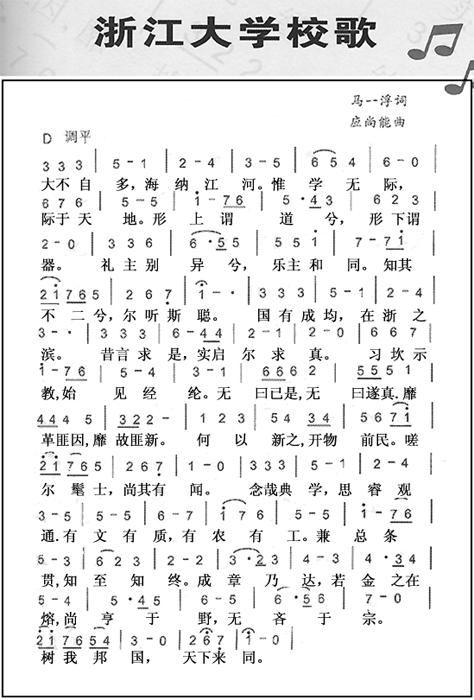 浙江大学校歌
马一浮词
应尚能曲
D 调平
3 3 3 | 5 - 1 | 2 - 4 | 3 - 5 | 6 5 4 | 6 - 0
大不自 多,海 纳 江 河。惟 学 无 际,
6 7 6 | 5 - 5 | 1 - 7 6 | 5 · 4 3 | 6 2 3
际于天 地。形 上 谓 道 兮, 形下谓
2 - 0 | 3 3 6 | 6 · 5 5 | 5 5 1 | 7 - 7 1
器。 礼 主 别 异 兮, 乐主和 同。知其
2 1 7 6 5 | 2 6 7 | 1 - · | 3 3 3 | 5 - 1 | 2 - 4
不 二兮,尔听斯 聪。 国有成 均,在 浙 之
3 - · | 3 3 3 | 6 - 4 4 | 2 - 1 | 2 - 0 | 6 6 7
滨。 昔言求 是,实启 尔 求 真。 习坎示
1 - 7 6 | 5 - 4 | 3 - 1 | 6 6 6 2 | 5 5 5 1
教,始 见 经 纶。无 曰已是,无 曰遂真.靡
4 4 4 5 | 3 2 2 - | 1 2 3 | 5 4 3 4 | 5 6 7 1
革匪因,靡 故匪新。 何 以 新之,开物 前民。嗟
2 1 7 6 5 | 2 6 7 | 1 - 0 | 3 3 3 | 5 - 1 | 2 - 4
尔 髦士,尚其有 闻。 念哉典 学,思 睿 观
3 - 5 | 5 - 5 | 6 - 7 | 1 7 6 | 5 - 5 | 1 - 7 6
通.有 文 有 质,有 农 有 工。兼 总 条
5 - 3 | 6 2 3 | 2 - 2 | 3 · 2 3 | 4 - 3 | 4 · 3 4
贯,知 至 知 终。成 章 乃 达,若 金 之在
5 - 4 | 5 · 4 5 | 6 - 5 | 6 · 5 6 | 7 - 0
熔,尚 亨 于 野,无 吝 于 宗。
2 1 7 6 5 4 | 3 - 0 | 2 6 7 | 1 - 0
树 我 邦 国, 天下来 同。